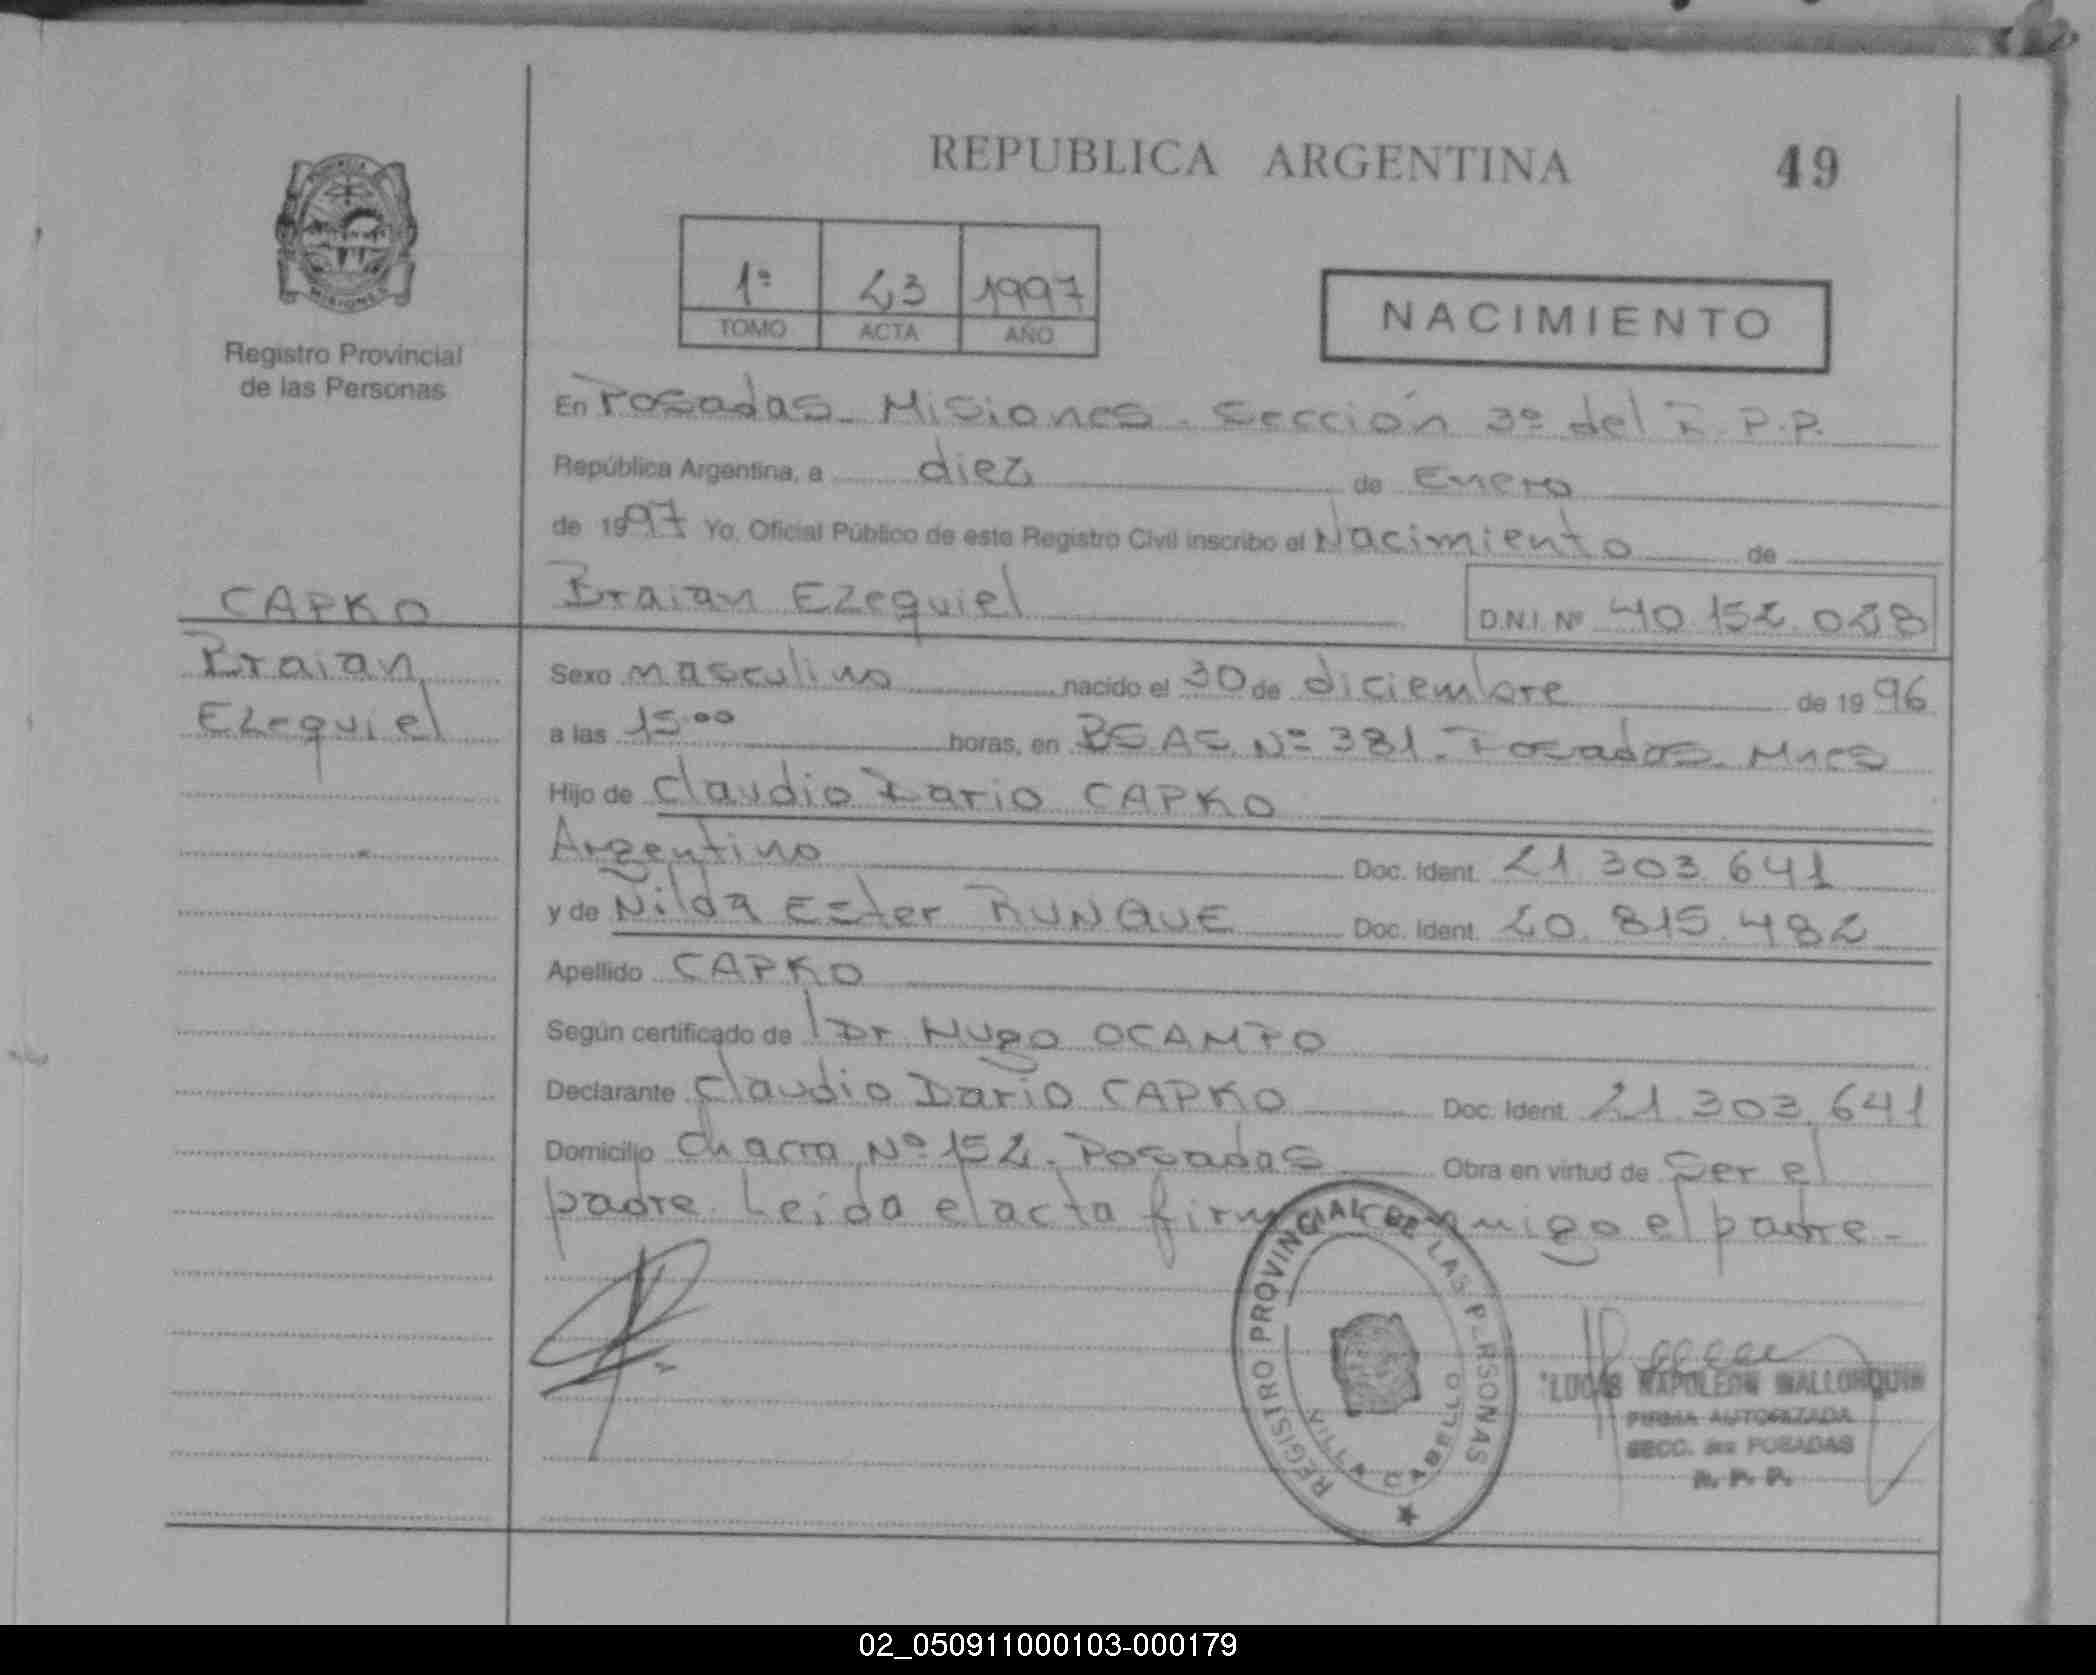 REPUBLICA ARGENTINA 49
PROVINCIA
MISIONES
Registro Provincial
de las Personas
1º 23 1997
TOMO ACTA AÑO
NACIMIENTO
En Posadas - Misiones - Sección 3º del R.P.P.
República Argentina, a diez de Enero
de 1997 Yo, Oficial Público de este Registro Civil inscribo el Nacimiento de
Braian Ezequiel D.N.I. Nº 40.152.028
CAPKO
Braian
Ezequiel
Sexo masculino nacido el 30 de diciembre de 1996
a las 15.00 horas, en BSAS Nº 381 - Posadas - Mnes
Hijo de Claudio Dario CAPKO
Argentino Doc. Ident. 21.303.641
y de Nilda Ester RUNQUE Doc. Ident. 20.815.482
Apellido CAPKO
Según certificado de Dr. Hugo OCAMPO
Declarante Claudio Dario CAPKO Doc. Ident. 21.303.641
Domicilio Chacra Nº 152 - Posadas Obra en virtud de Ser el
padre. Leida el acta firma conmigo el padre -
REGISTRO PROVINCIAL DE LAS PERSONAS
VILLA CABELLO
LUCAS NAPOLEON MALLORQUIN
FIRMA AUTORIZADA
SECC. 3ra POSADAS
R. P. P.
02_050911000103-000179